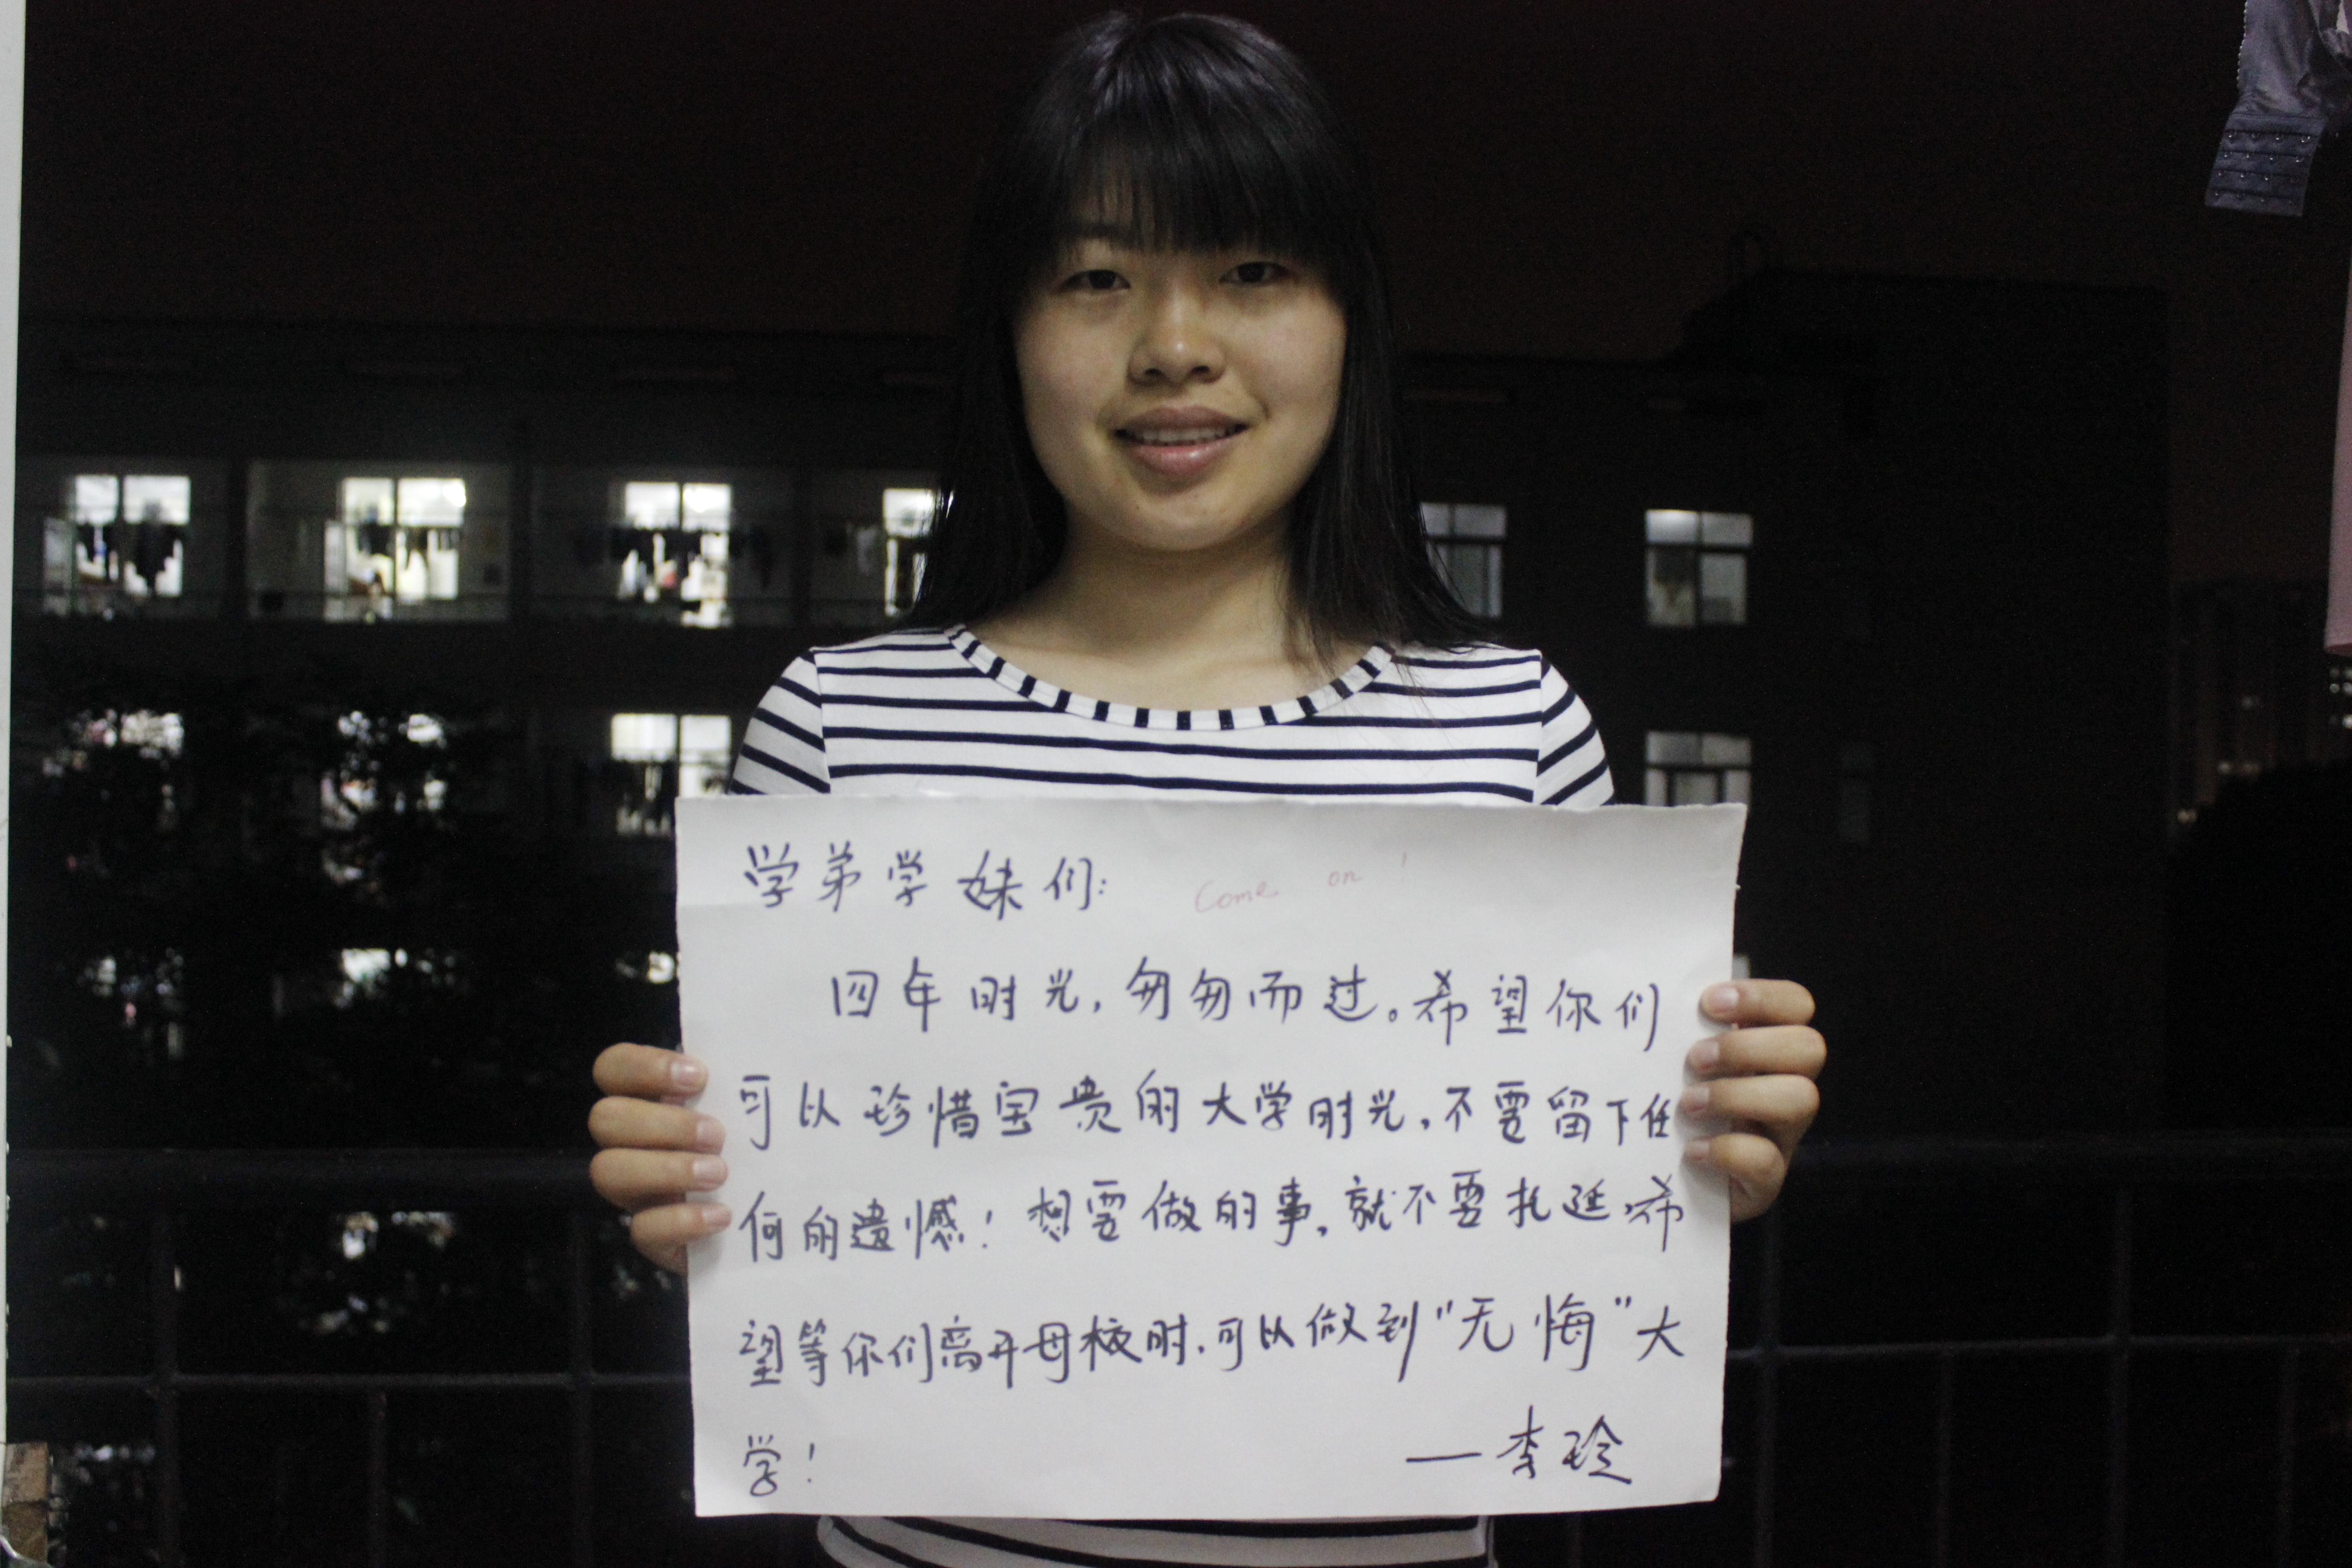 学弟学妹们： Come on！
四年时光，匆匆而过。希望你们
可以珍惜宝贵的大学时光，不要留下任
何的遗憾！想要做的事，就不要拖延，希
望等你们离开母校时，可以做到“无悔”大
学！ —李玲